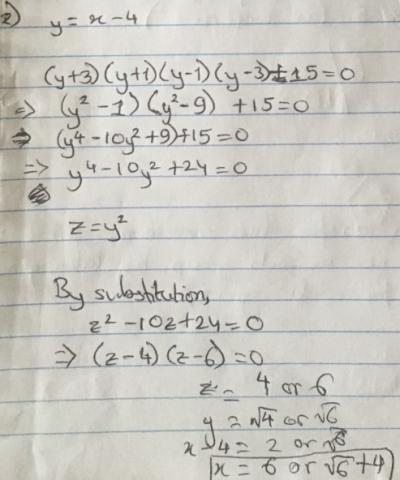 2) y = x - 4
(y+3)(y+1)(y-1)(y-3)+15=0
=> (y² - 1)(y² - 9) + 15 = 0
=> (y⁴ - 10y² + 9) + 15 = 0
=> y⁴ - 10y² + 24 = 0
z = y²
By substitution,
z² - 10z + 24 = 0
=> (z - 4)(z - 6) = 0
z = 4 or 6
y = √4 or √6
x - 4 = 2 or √6
x = 6 or √6 + 4